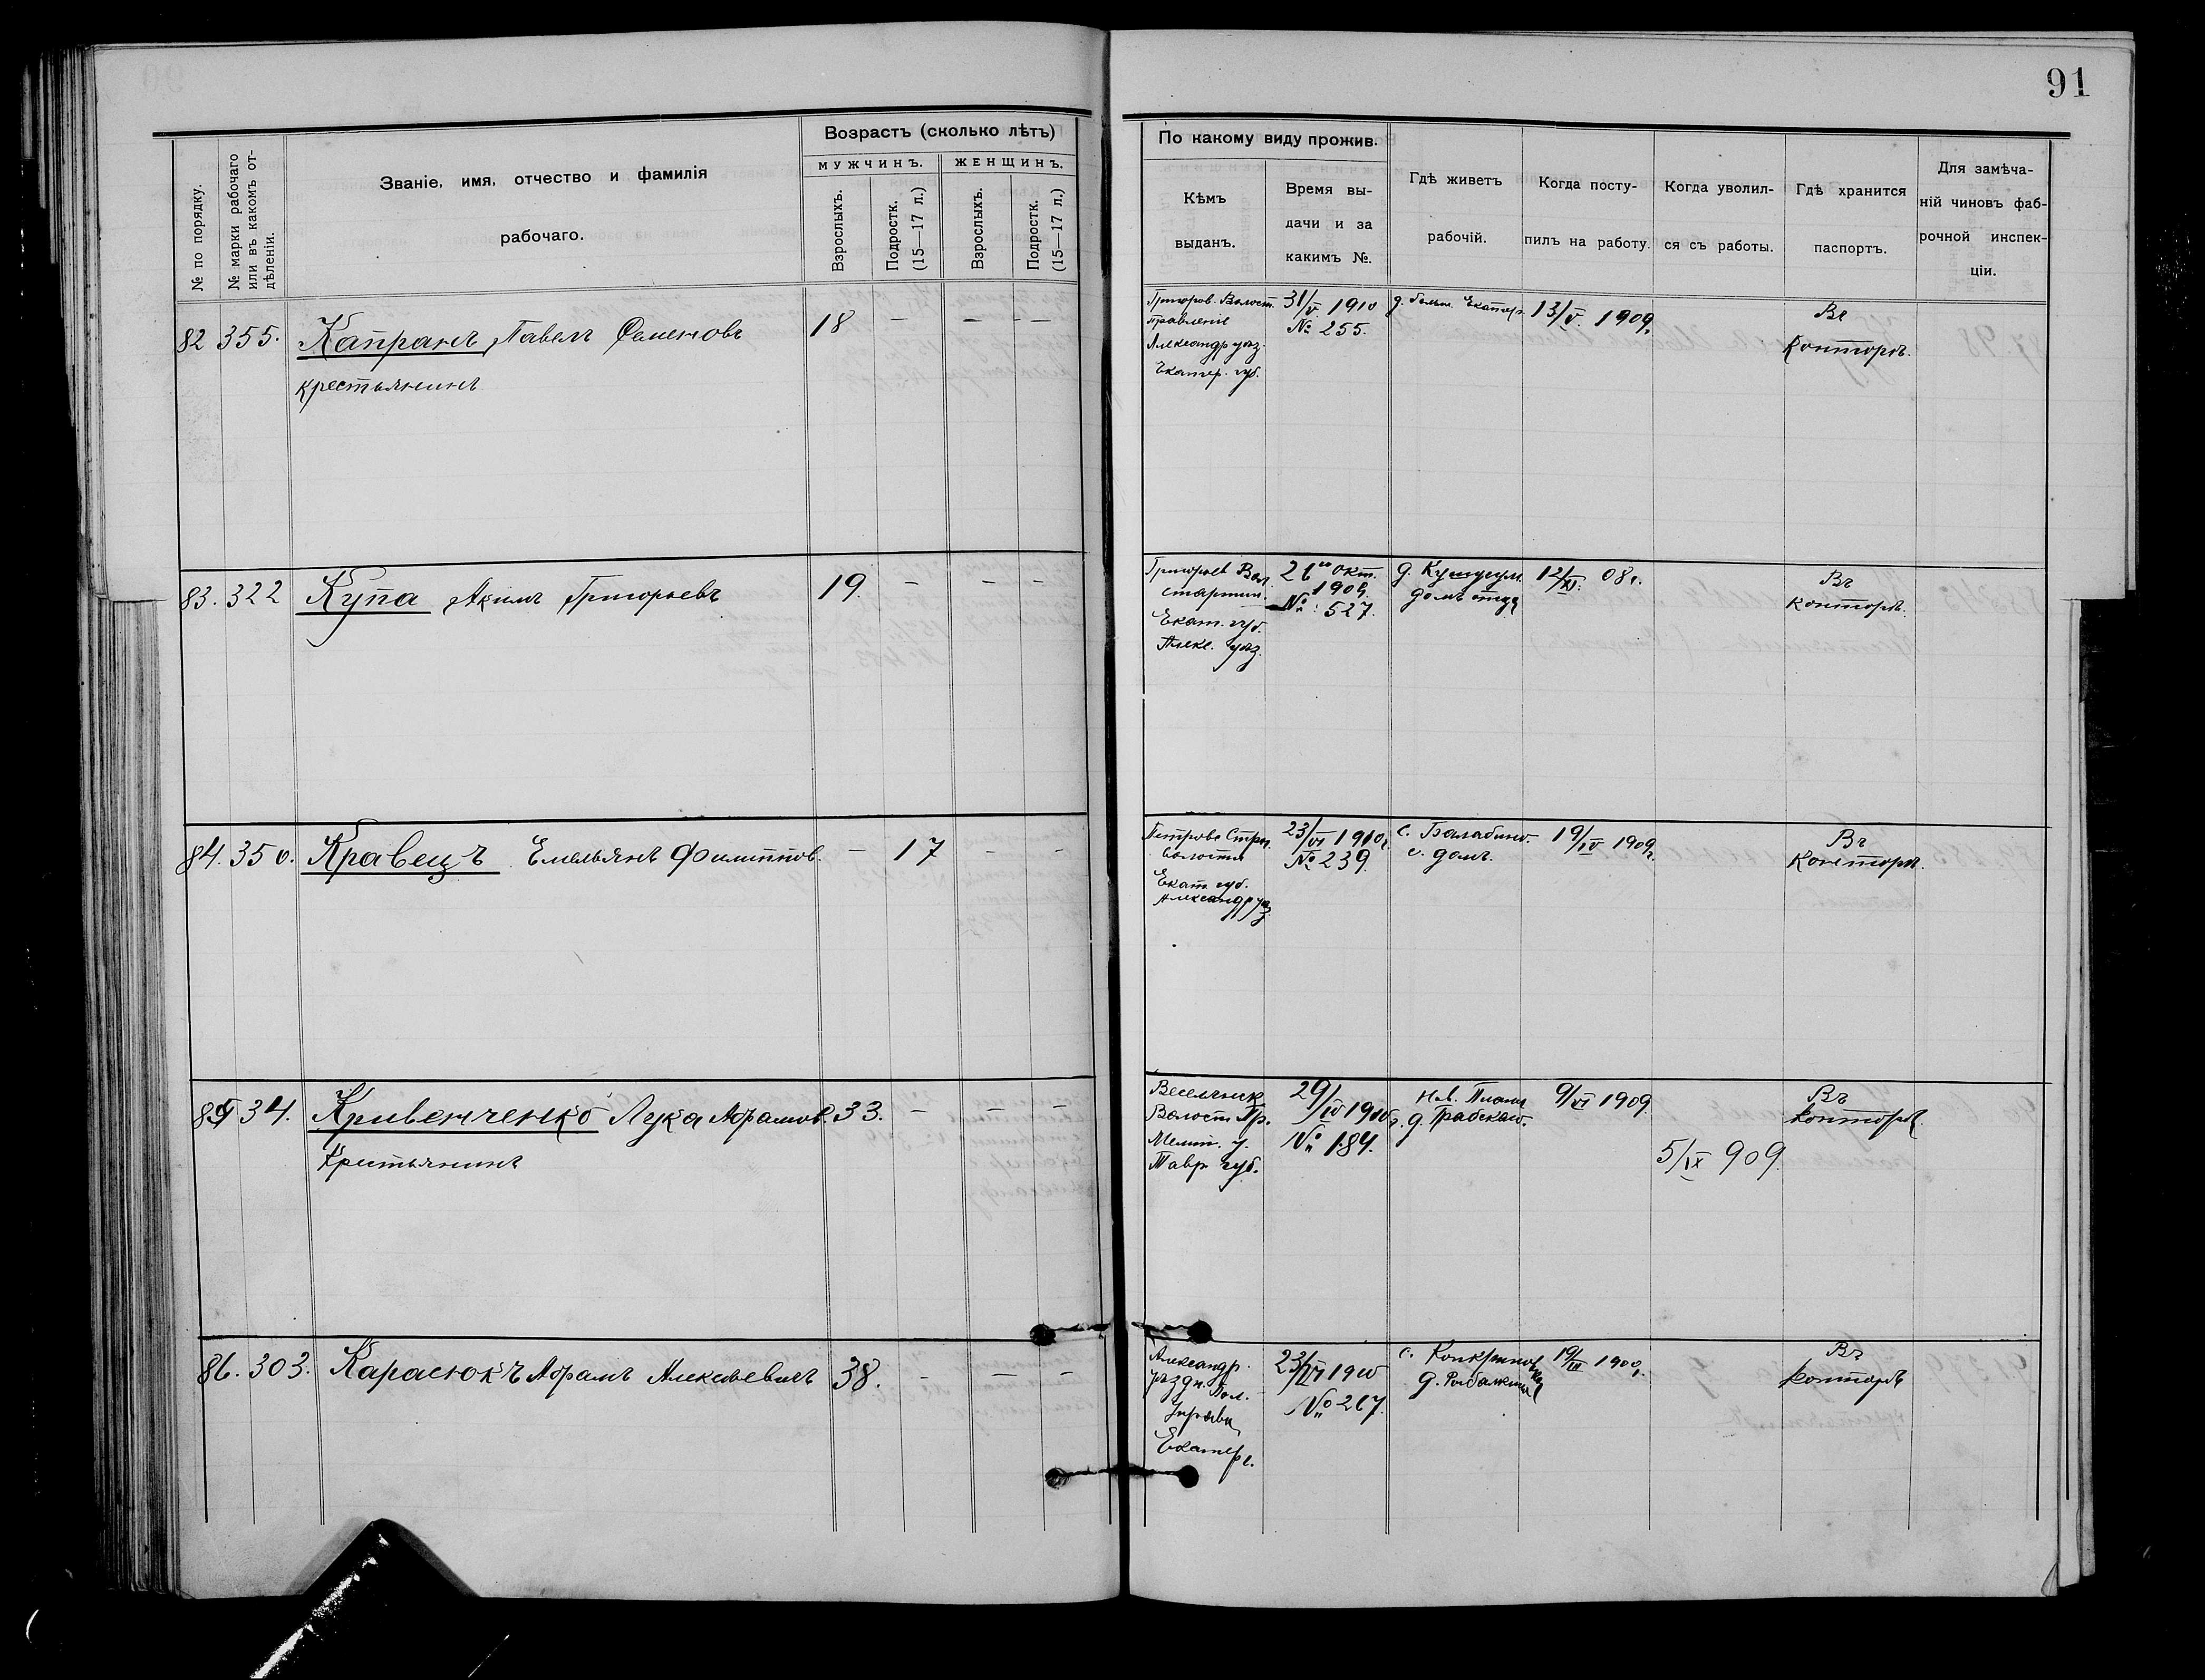 91
№ по порядку.
№ марки рабочаго или въ какомъ отдѣленіи.
Званіе, имя, отчество и фамилія
рабочаго.
Возрастъ (сколько лѣтъ)
МУЖЧИНЪ.
ЖЕНЩИНЪ.
Взрослыхъ.
Подростк. (15—17 л.)
Взрослыхъ.
Подростк. (15—17 л.)
По какому виду прожив.
Кѣмъ
выданъ.
Время вы-
дачи и за
какимъ №.
Гдѣ живетъ
рабочій.
Когда посту-
пилъ на работу.
Когда уволил-
ся съ работы.
Гдѣ хранится
паспортъ.
Для замѣча-
ній чиновъ фаб-
рочной инспек-
ціи.
82 355. Капранъ, Павелъ Семеновъ 18 — — —
крестьянинъ
Григоров. Волост.
Правленіе
Александр уѣз.
Екатер. губ.
31/V. 1910
№ 255.
13/V. 1909г
Въ
Конторѣ.
83. 322 Купа Акимъ Григорьевъ 19. — — —
Екат. губ.
уѣз.
№ 527.
д. Кушугум.
домъ отца
12/XI. 08г.
Въ
конторѣ.
84. 350. Кравецъ Емельянъ Филиппов. — 17 — —
Екат губ.
Александр уѣз
23/VI 1910г
№ 239.
с. Балабино.
с. домъ.
19/IV 1909г.
Въ
Конторѣ.
85 34. Кривенченко Лука Абрамов. 33. — — —
Крестьянинъ
Волост Пр.
Мелит. у.
Тавр губ.
29/IV 1910г.
№ 184.
9/VI 1909
5/IX 909.
Въ
конторѣ.
86. 303. Карасюкъ Абрамъ Алексѣевичъ 38. — — —
Александр.
Вол.
Екатер г.
23/VI 1910
№ 267.
Въ
конторѣ